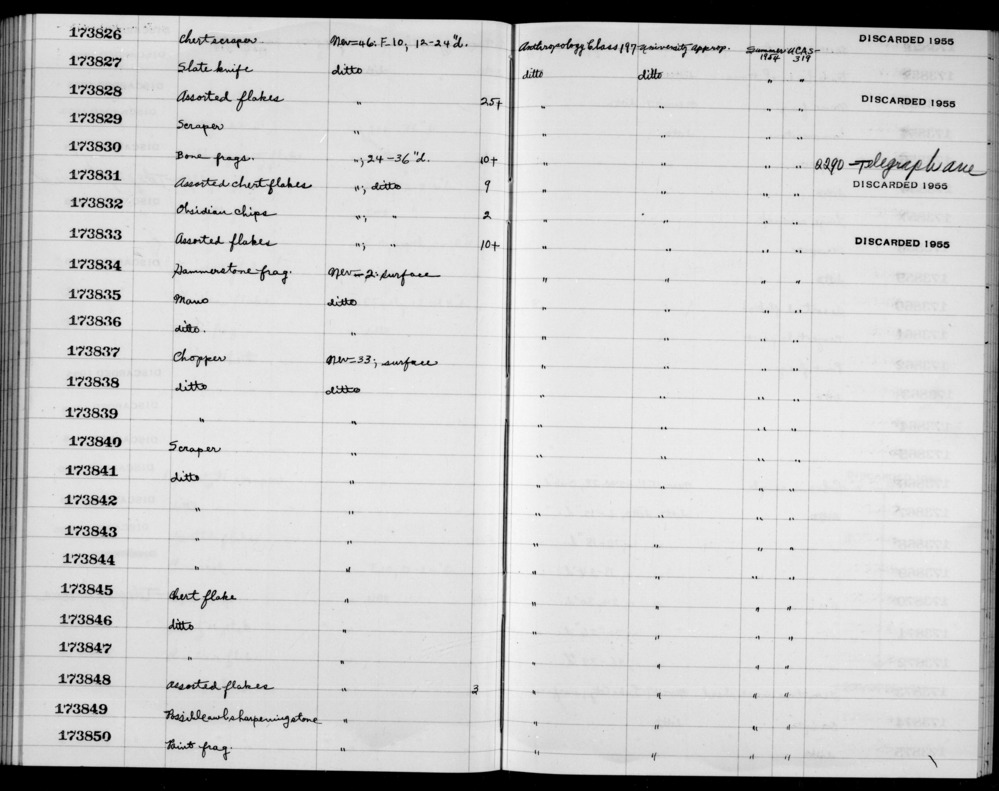 173826 Chert scraper. Nev-46: F-10; 12-24"d. Anthropology Class 197 University approp. Summer 1954 UCAS-319 DISCARDED 1955
173827 Slate knife ditto ditto ditto " "
173828 Assorted flakes " 25+ " " " " DISCARDED 1955
173829 Scraper " " " " "
173830 Bone frags. "; 24-36"d. 10+ " " " " 2290 Telegraph ave
173831 Assorted chert flakes "; ditto 9 " " " " DISCARDED 1955
173832 Obsidian chips "; " 2 " " " "
173833 Assorted flakes "; " 10+ " " " " DISCARDED 1955
173834 Hammerstone frag. Nev-2: surface " " " "
173835 Mano ditto " " " "
173836 ditto. " " " " "
173837 Chopper Nev-33; surface " " " "
173838 ditto ditto " " " "
173839 " " " " " "
173840 Scraper " " " " "
173841 ditto " " " " "
173842 " " " " " "
173843 " " " " " "
173844 " " " " " "
173845 Chert flake " " " " "
173846 ditto " " " " "
173847 " " " " " "
173848 Assorted flakes " 3 " " " "
173849 Possible awl sharpening stone " " " " "
173850 Point frag. " " " " "